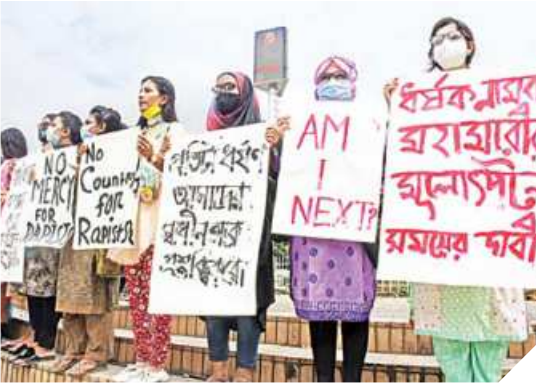 NO
MERCY
FOR
RAPISTS
No
Country
for
Rapists
প্রতিটা ধর্ষণ
আমাদের
স্বাধীনতাকে
প্রশ্নবিদ্ধ করে
AM
I
NEXT?
ধর্ষক নামক
মহামারীর
মূলোৎপাটন
সময়ের দাবী